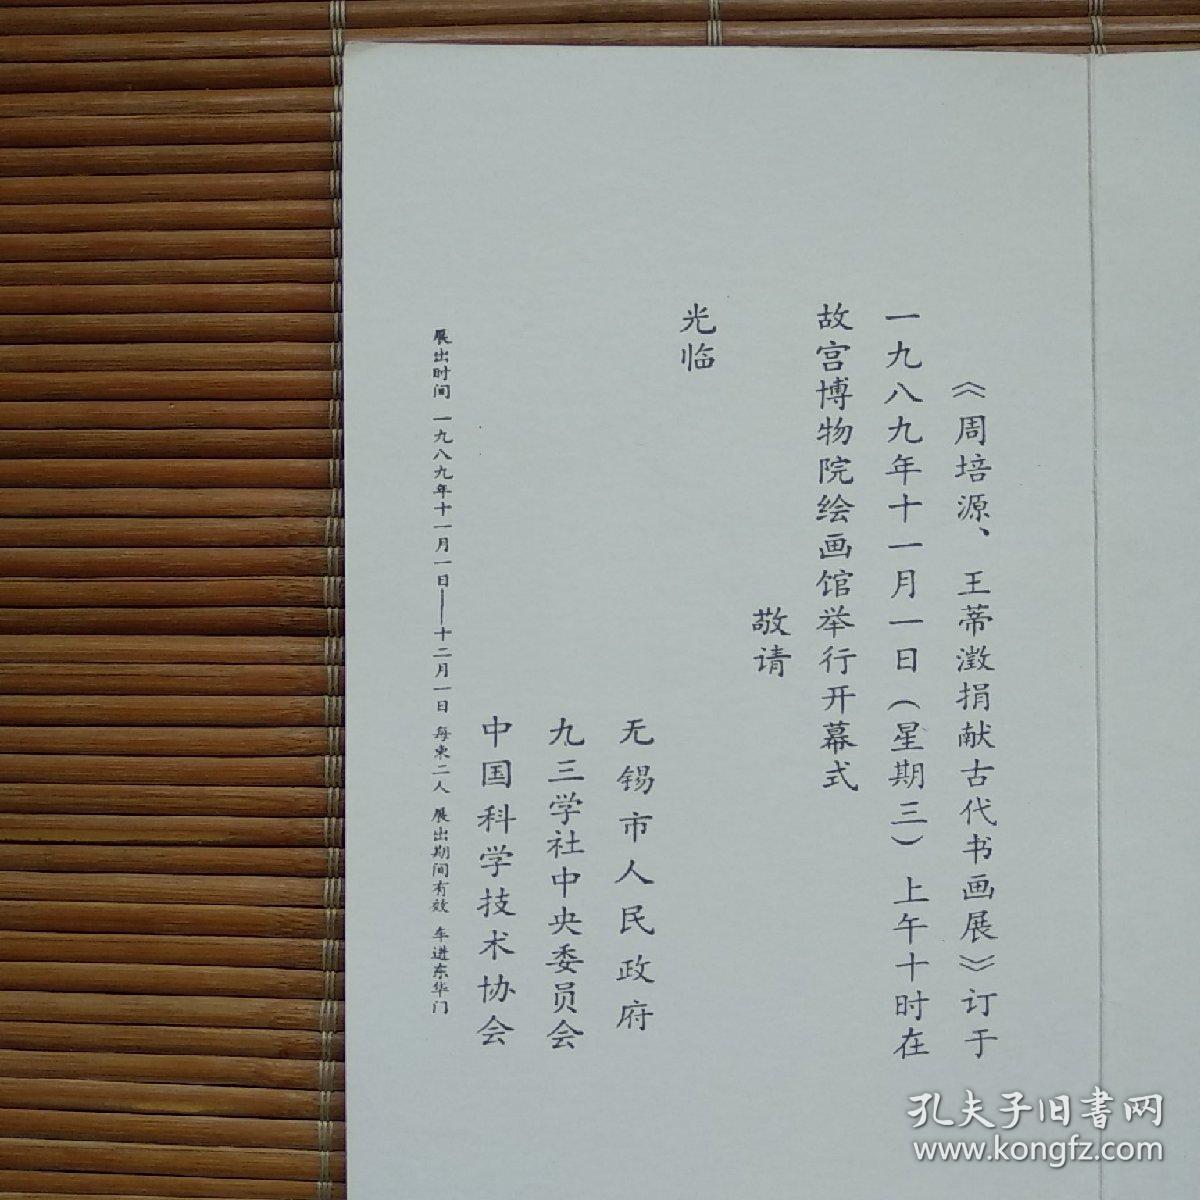 《周培源、王蒂澂捐献古代书画展》订于
一九八九年十一月一日(星期三)上午十时在
故宫博物院绘画馆举行开幕式
敬请
光临
无锡市人民政府
九三学社中央委员会
中国科学技术协会
展出时间 一九八九年十一月一日——十二月一日 每柬二人 展出期间有效 车进东华门
孔夫子旧书网
www.kongfz.com